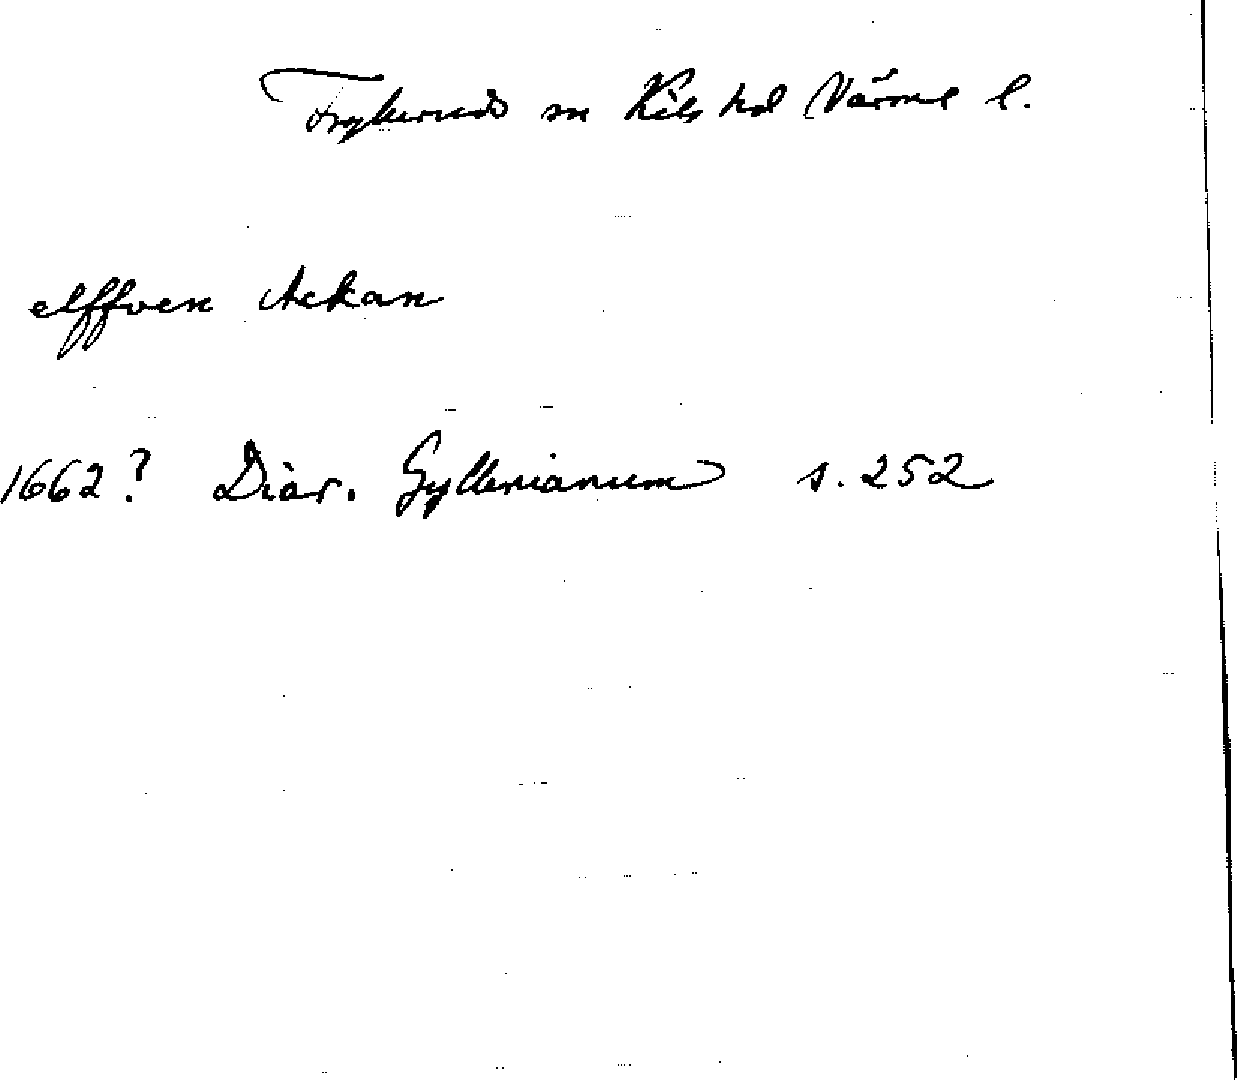 Frykerud sn Kils hd Värml l.
elffven Ackan
1662? Diar. Gyllenianum s. 252